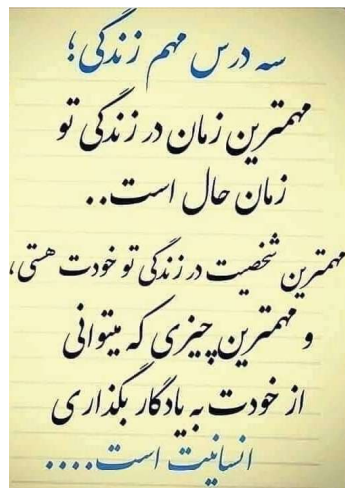 سه درس مهم زندگی؛
مهمترین زمان در زندگی تو
زمان حال است..
مهمترین شخصیت در زندگی تو خودت هستی،
و مهمترین چیزی که میتوانی
از خودت به یادگار بگذاری
انسانیت است....